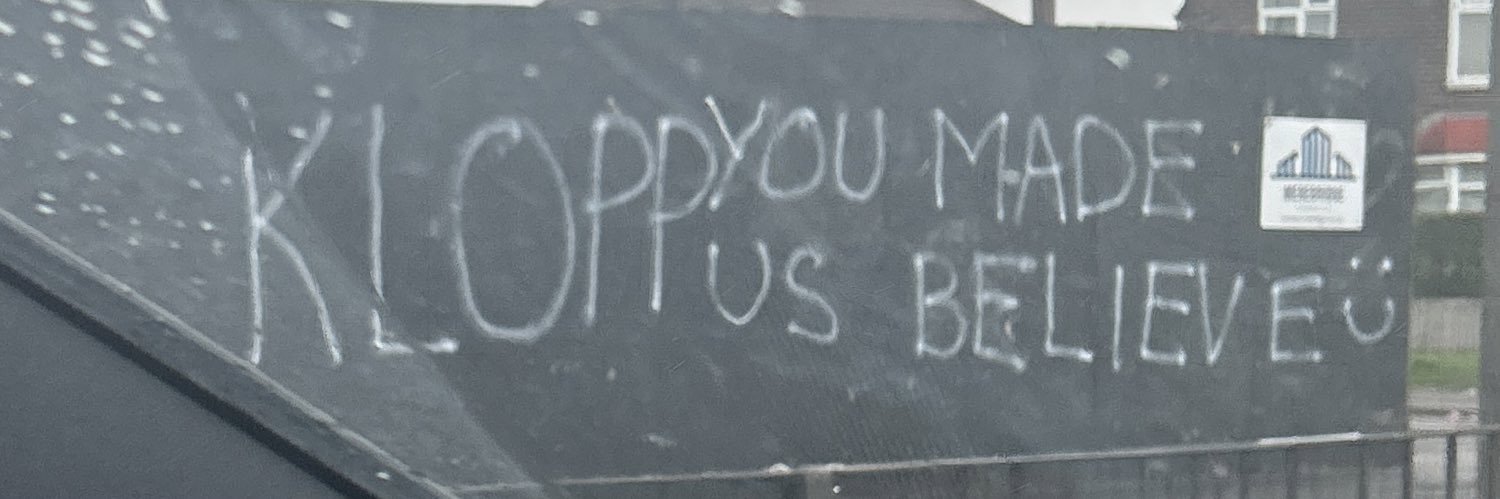 KLOPP YOU MADE
US BELIEVE